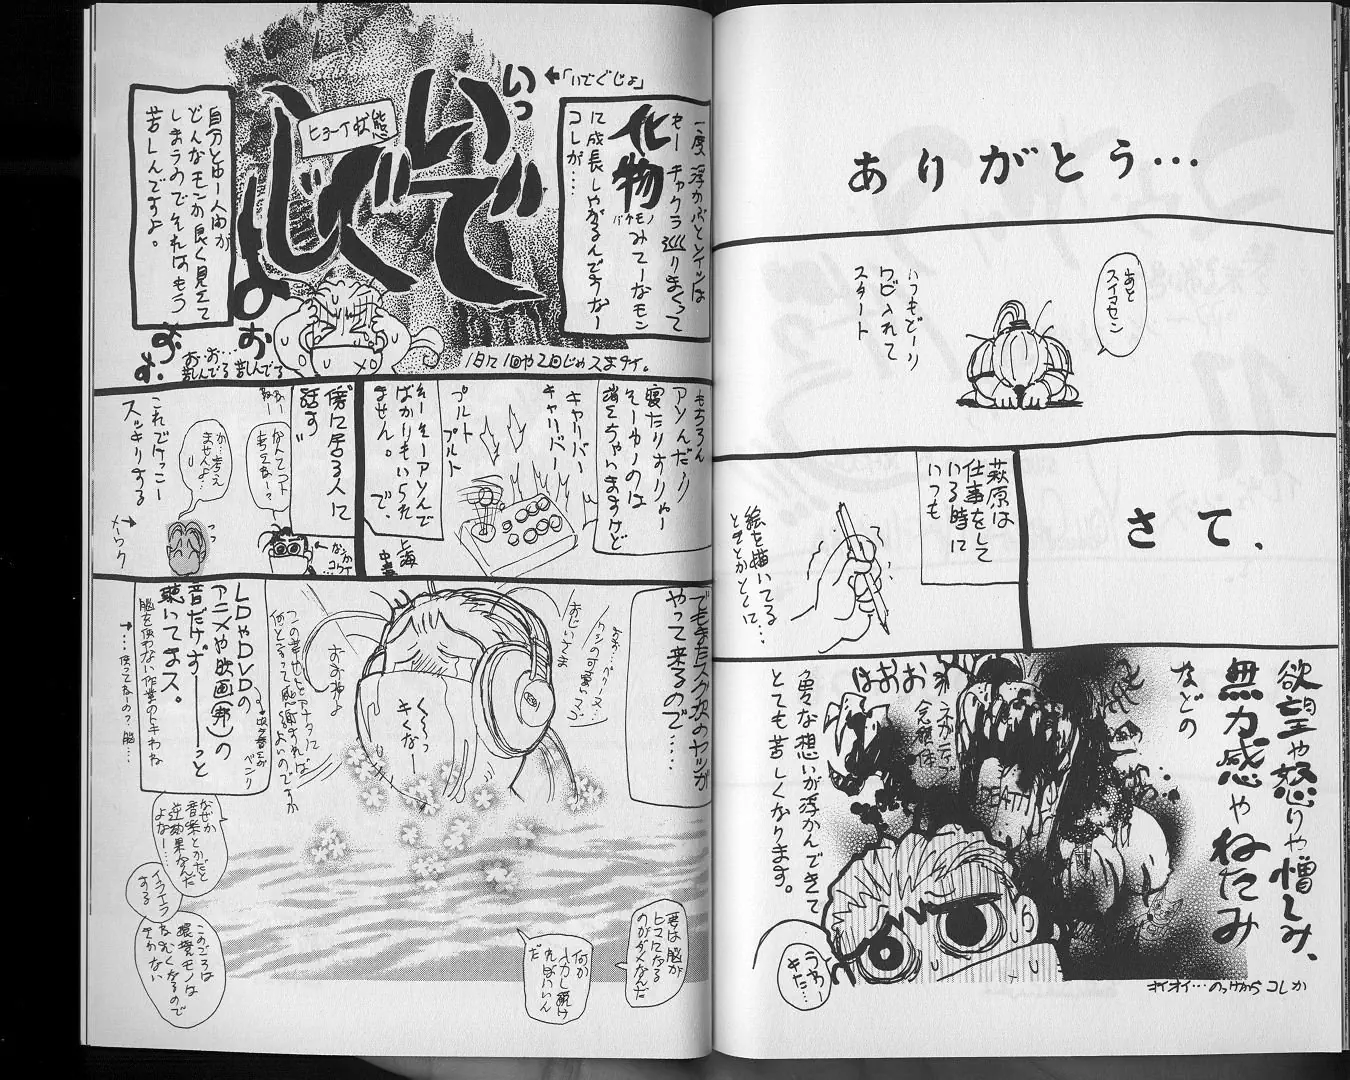 ありがとう…
あと
スイマセン
いつもどーり
ワビ入れて
スタート
さて、
萩原は
仕事をして
いる時に
いつも
絵を描いてる
ときとかとくに…
欲望や怒りや憎しみ、
無力感やねたみ
などの
ネガティブ
念願体
ほおお
色々な想いが浮かんできて
とても苦しくなります。
うわー
きた…
オイオイ…のっけからコレか
一度浮かぶとソイツは
もーチャクラ巡りまくって
化物みてーなモン
バケモノ
に成長しやがるんですなー
コレが…
←「いでぐじょ」
いっ
いで
ぐじょ
ヒョーイ状態
自分とゆー人間が
どんなモンか良く見えて
しまうのでそれはもう
苦しんですよ。
おお
苦しんでる
お…お…
苦しんでる
ます。
1日に1回や2回じゃスまナイ。
もちろん
アソんだり
寝たりすりゃー
そーゆーのは
消えちゃいますけど
キャリバー
キャリバー
プルト
プルト
そーそーアソんで
ばかりもいられ
ません。で、
上海
傍に居る人に
話す
なんてコト
考えない?
か…考え
ませんよ…
これでけっこー
スッキリする
メーワク
でもまたスグ次のヤツが
やって来るので…
くくっ
くそっ
LDやDVDの、
アニメや映画(邦)の
音だけずーーーっと
聴いてまス。
脳を使わない作業のトキわな
→…使ってなーの?脳…
なぜか
音楽とかだと
逆効果なんだ
よなー…
イライラ
する
このごろは
環境モノは
ねむくなるので
きかない
要は脳が
ヒマになる
のがダメなんだ
何か
入力し続け
ればいいん
だ